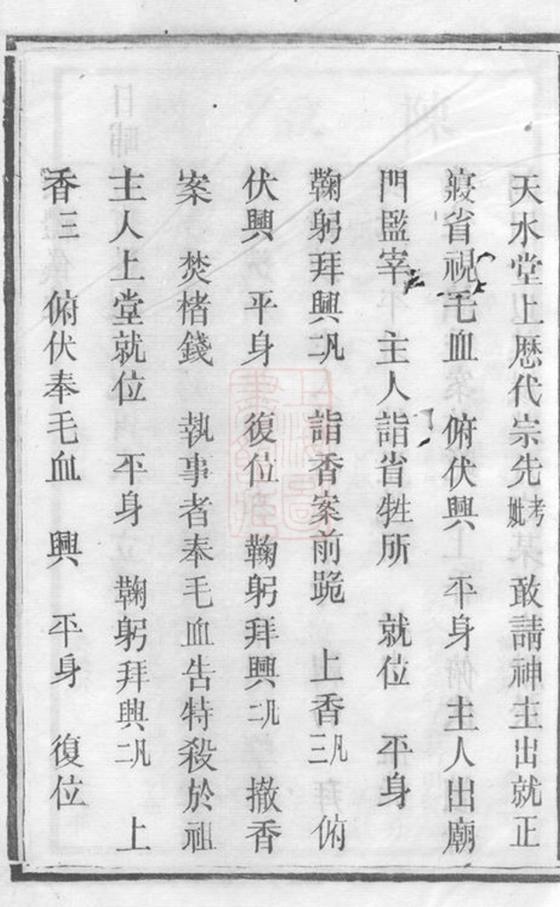 天水堂上歷代宗先考妣 敢請神主出就正
寢省視毛血 俯伏興 平身 主人出廟
門監宰 主人詣省牲所 就位 平身
鞠躬拜興凡二 詣香案前跪 上香凡三 俯
伏興 平身 復位 鞠躬拜興凡二 撤香
案 焚楮錢 執事者奉毛血告特殺於祖
主人上堂就位 平身 鞠躬拜興凡二 上
香三 俯伏奉毛血 興 平身 復位